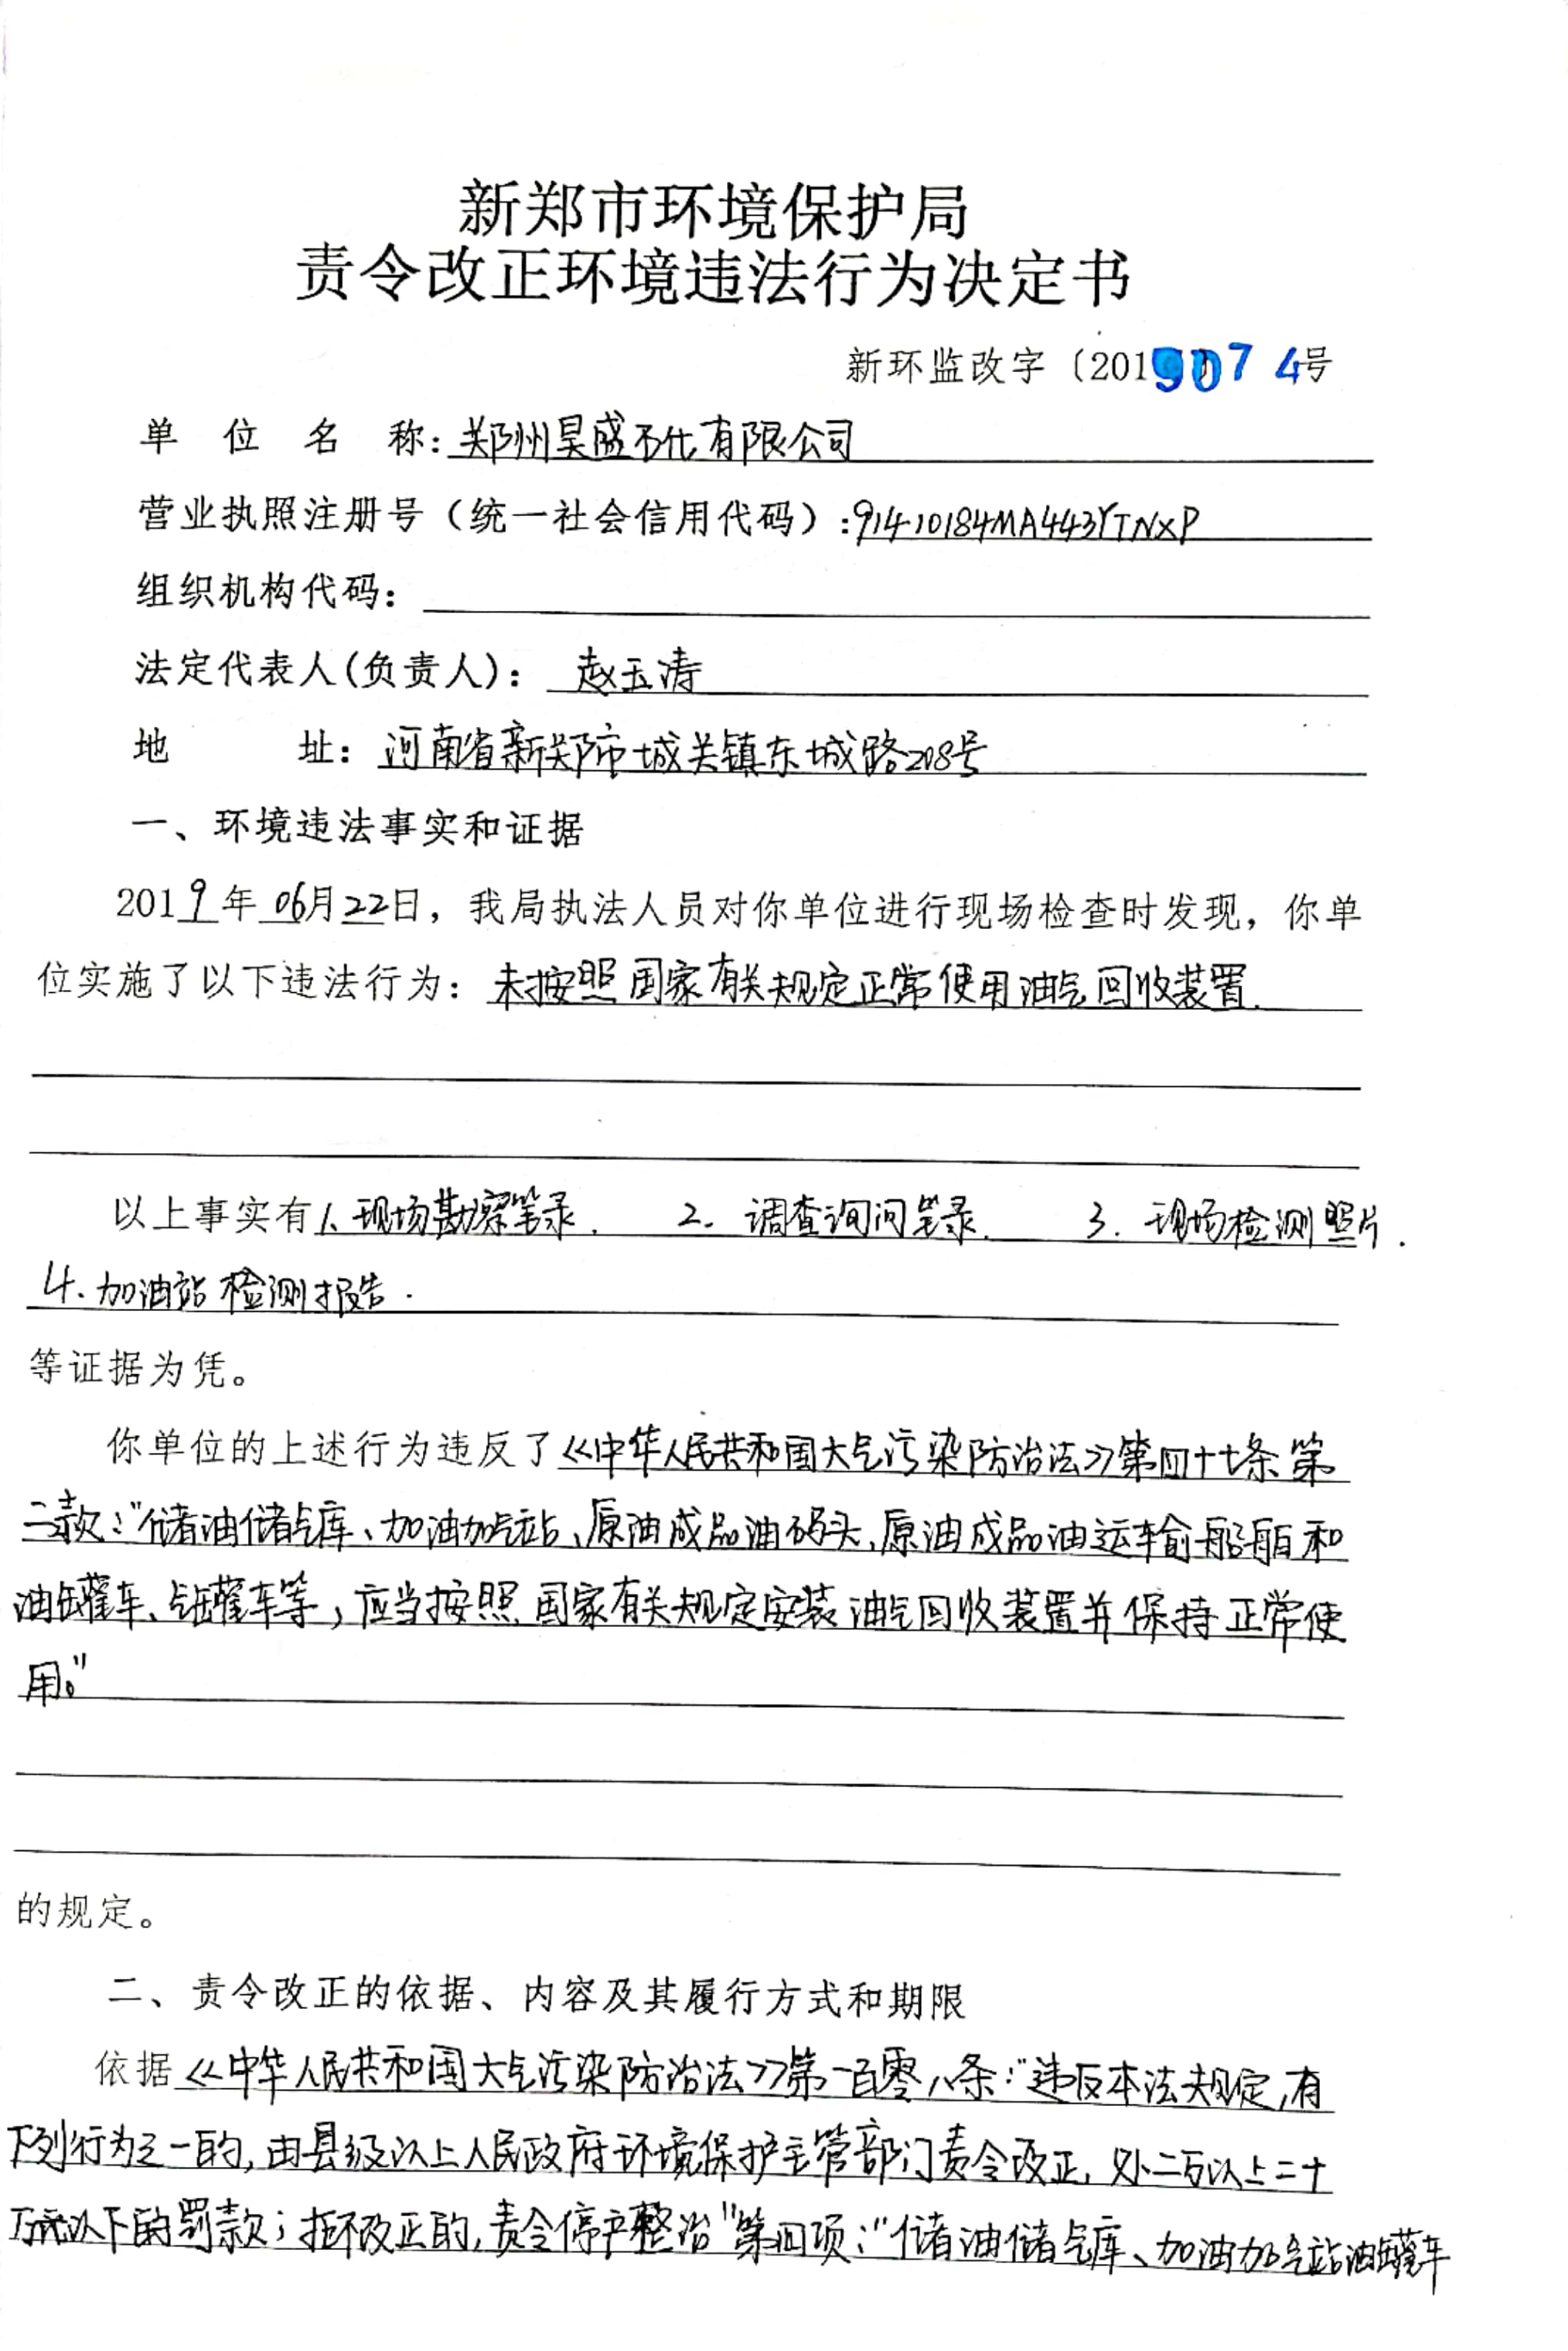 新郑市环境保护局
责令改正环境违法行为决定书
新环监改字〔2019〕074号
单位名称：郑州昊盛石化有限公司
营业执照注册号（统一社会信用代码）：91410184MA443YTNXP
组织机构代码：
法定代表人(负责人)：赵玉涛
地址：河南省新郑市城关镇东城路208号
一、环境违法事实和证据
2019年06月22日，我局执法人员对你单位进行现场检查时发现，你单
位实施了以下违法行为：未按照国家有关规定正常使用油气回收装置.
以上事实有1、现场勘察笔录. 2. 调查询问笔录. 3. 现场检测照片.
4.加油站检测报告.
等证据为凭。
你单位的上述行为违反了《中华人民共和国大气污染防治法》第四十七条第
三款："储油储气库、加油加气站、原油成品油码头、原油成品油运输船舶和
油罐车、气罐车等，应当按照国家有关规定安装油气回收装置并保持正常使
用。"
的规定。
二、责令改正的依据、内容及其履行方式和期限
依据《中华人民共和国大气污染防治法》第一百零八条："违反本法规定,有
下列行为之一的,由县级以上人民政府环境保护主管部门责令改正,处二万以上二十
万元以下的罚款；拒不改正的,责令停产整治"第四项："储油储气库、加油加气站油罐车